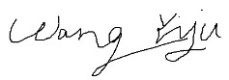 Wang Yiju